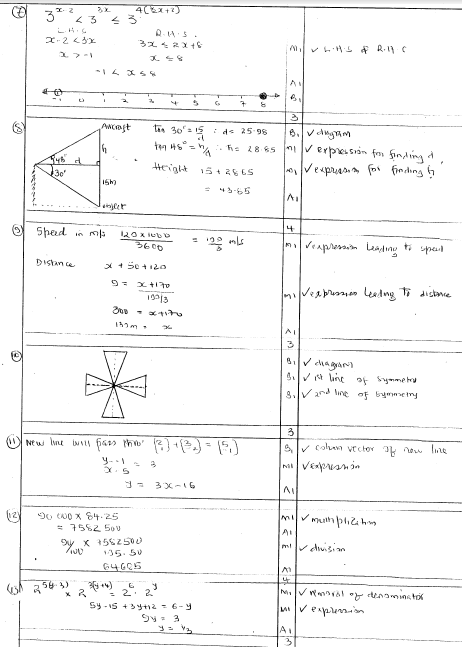 ⑦ 3^(x-2) < 3^(3x) ≤ 3^(4(½x+2))
L.H.S R.H.S.
x-2 < 3x 3x ≤ 2x+8 M1 ✓ L.H.S & R.H.S
x > -1 x ≤ 8
-1 < x ≤ 8 A1
-1 0 1 2 3 4 5 6 7 8 B1
3
⑧ Aircraft tan 30° = 15/d ∴ d = 25.98 B1 ✓ diagram
h tan 48° = h/d ∴ h = 28.85 M1 ✓ expression for finding d
48° d 30° Height 15 + 28.65 M1 ✓ expression for finding h
15m = 43.65 A1
object
4
⑨ Speed in m/s 120x1000/3600 = 100/3 m/s M1 ✓ expression leading to speed
Distance x + 50 + 120
9 = x+170/(100/3) M1 ✓ expression leading to distance
300 = x+170
130m = x A1
3
⑩ B1 ✓ diagram
B1 ✓ 1st line of symmetry
B1 ✓ 2nd line of symmetry
3
⑪ New line will pass thro' (2 1) + (3 -2) = (5 -1) B1 ✓ column vector of new line
y--1/x-5 = 3 M1 ✓ expression
y = 3x-16 A1
⑫ 90 000 x 84.25 M1 ✓ multiplication
= 7582500 A1
90/100 x 7582500/105.50 M1 ✓ division
64685 A1
4
⑬ 2^(5(y-3)) x 2^(3(y+4)) = 2^6 . 2^-y M1 ✓ removal of denominator
5y-15+3y+12 = 6-y M1 ✓ expression
9y = 3
y = 1/3 A1
3